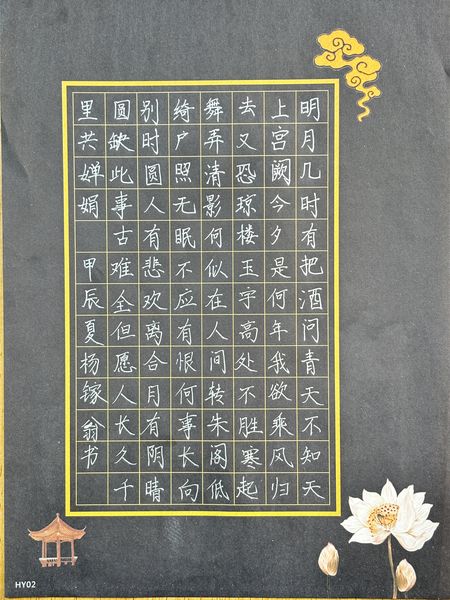 明月几时有把酒问青天不知天
上宫阙今夕是何年我欲乘风归
去又恐琼楼玉宇高处不胜寒起
舞弄清影何似在人间转朱阁低
绮户照无眠不应有恨何事长向
别时圆人有悲欢离合月有阴晴
圆缺此事古难全但愿人长久千
里共婵娟 甲辰夏杨镓翁书
HY02